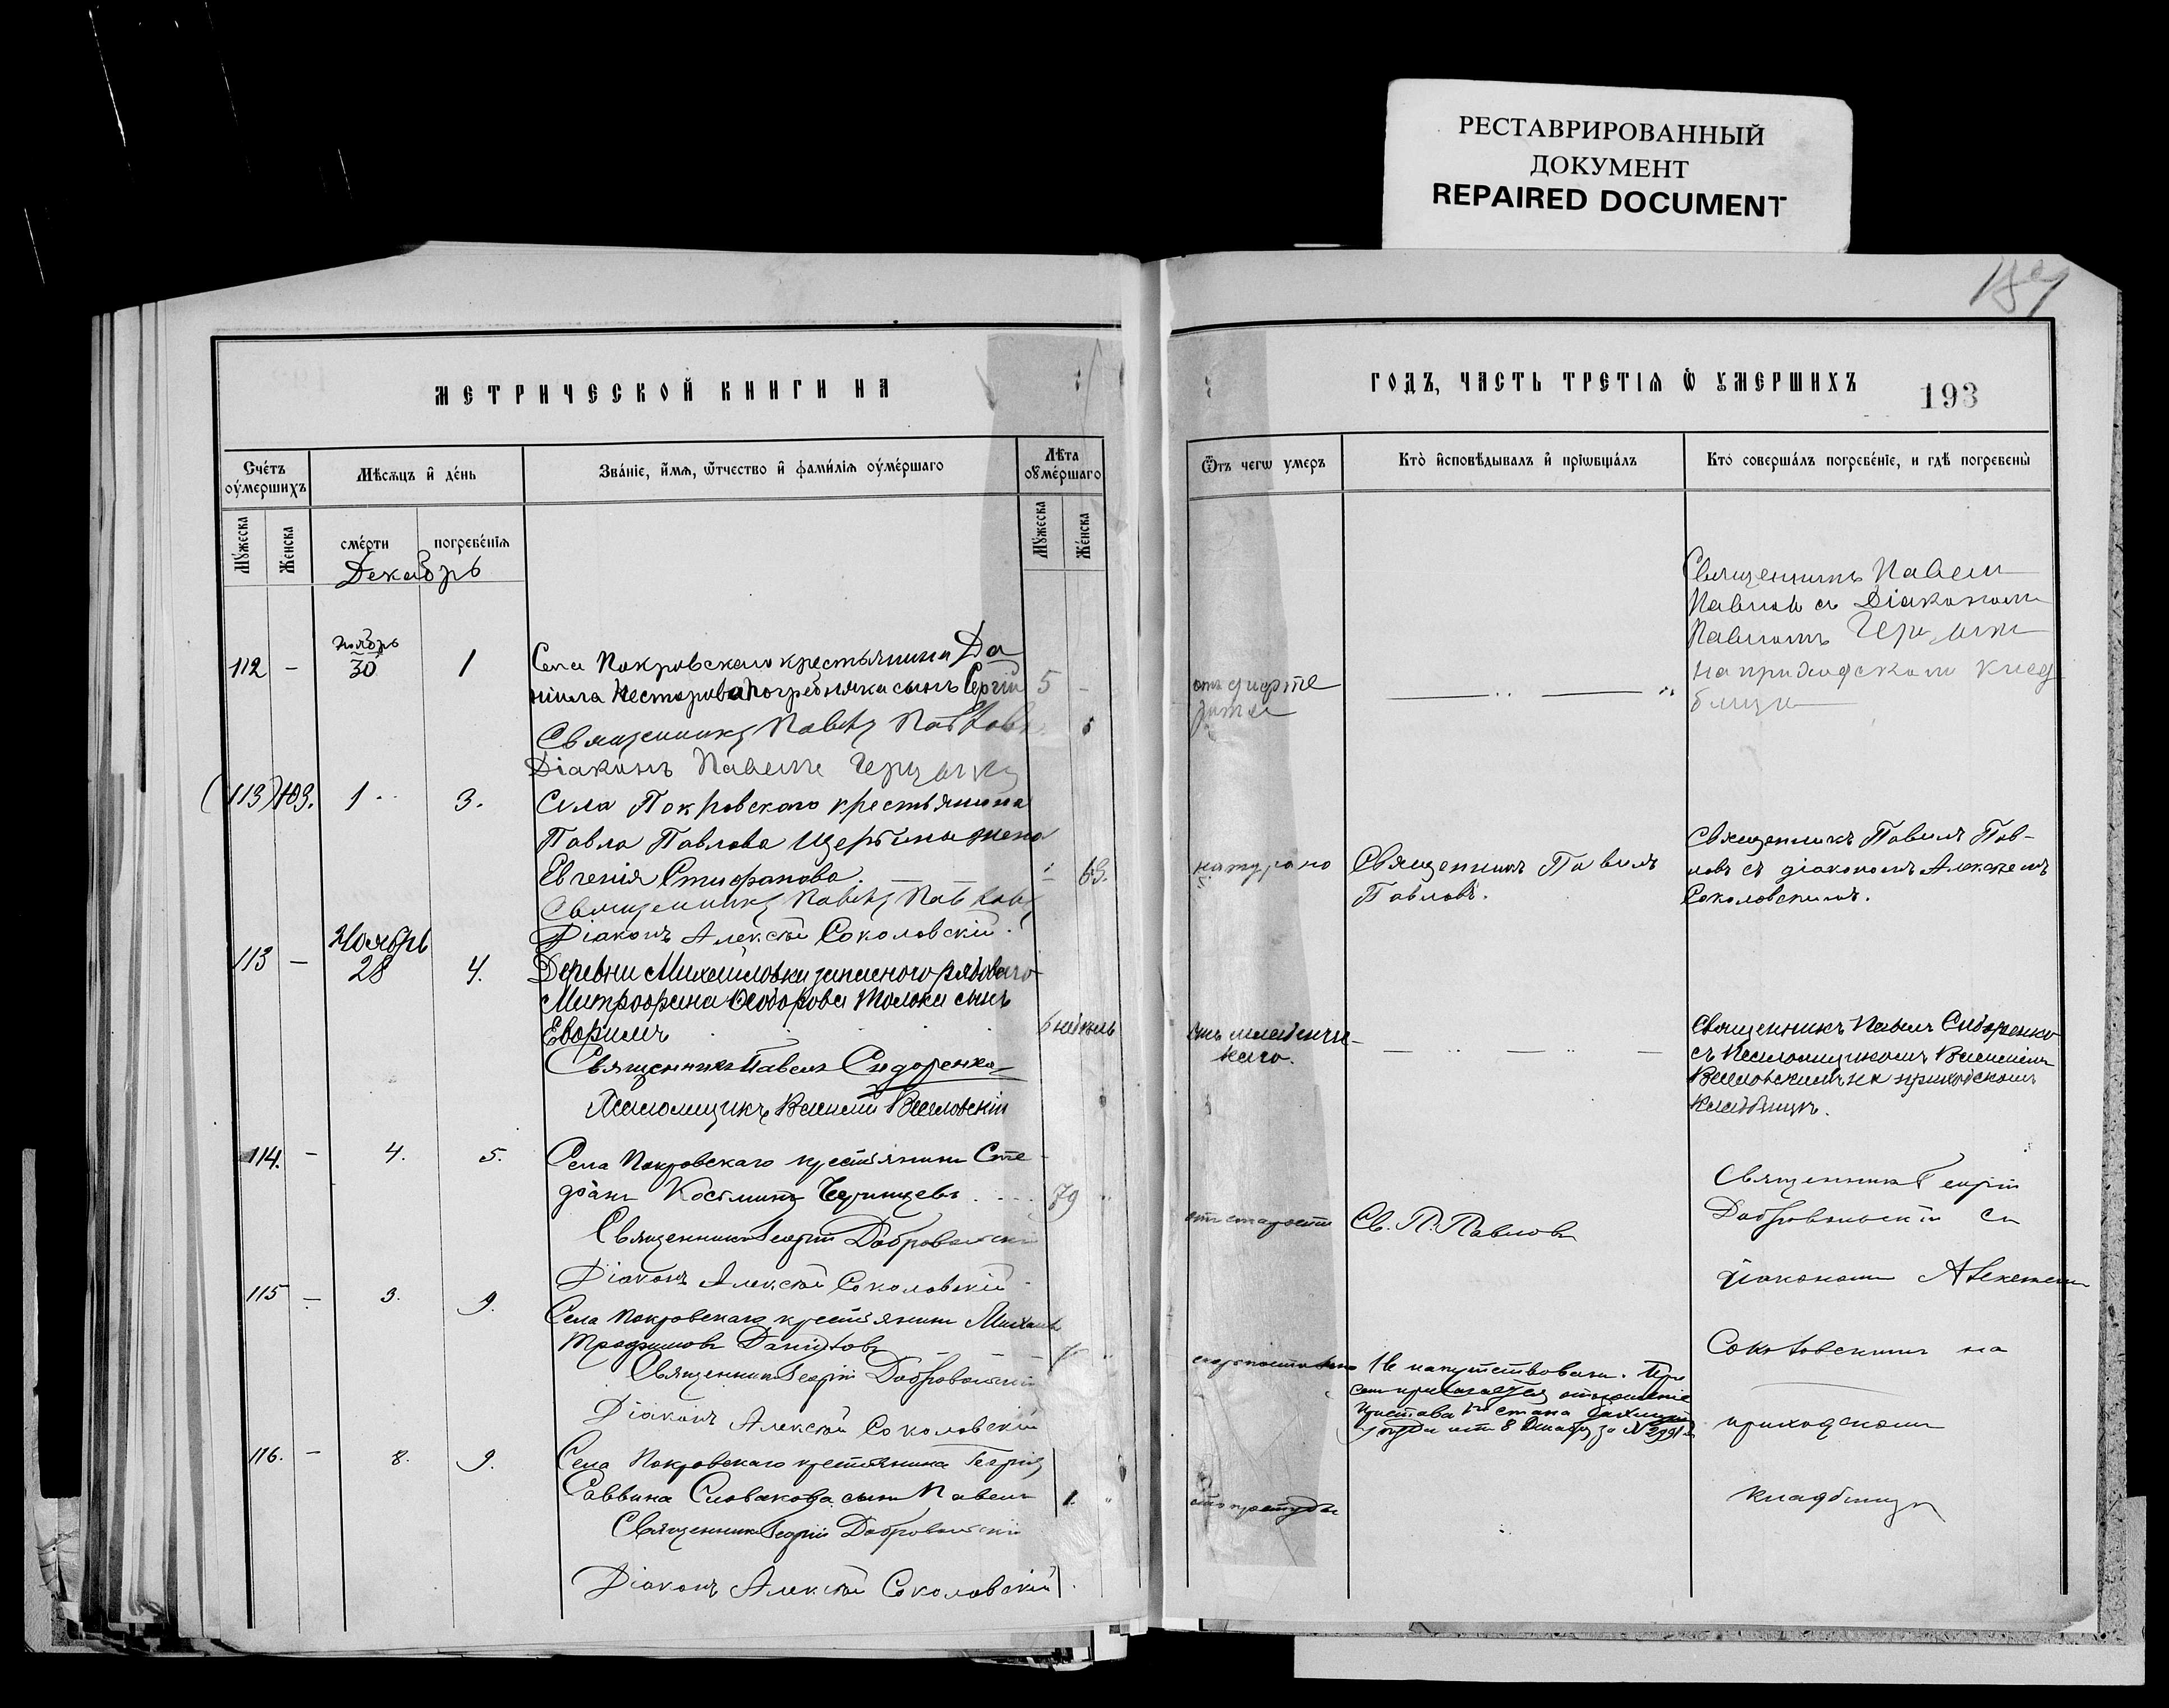 РЕСТАВРИРОВАННЫЙ
ДОКУМЕНТ
REPAIRED DOCUMENT
МЕТРИЧЕСКОЙ КНИГИ НА
Счетъ оумершихъ
Мѣсяцъ и день
Званіе, имя, отчество и фамилія оумершаго
Лѣта оумершаго
Мужеска
Женска
смерти
погребенія
Мужеска
Женска
Декабрь
112 – Ноябрь 30 1 Села Покровскаго крестьянина Да
ніила Несторова Погребняка сынъ Сергій 5 –
Священникъ Павелъ Павловъ
Діаконъ Павелъ
(113) 103. 1 3. Села Покровскаго крестьянина
Павла Павлова жена
Евгенія Стефанова. 63.
Священникъ Павелъ Павловъ
Діаконъ Алексѣй Соколовскій.
113 – Ноябрь 28 4. Деревни Михайловки запасного рядоваго
Митрофана Ѳеодорова Толока сынъ
Евфимъ 6 недѣль
Священникъ Павелъ Сидоренко
Псаломщикъ Василій
114. – 4. 5. Села Покровскаго крестьянинъ Сте
фанъ Косминъ 79
Священникъ Георгій Добровольскій
Діаконъ Алексѣй Соколовскій
115 – 3. 9. Села Покровскаго крестьянинъ Михаилъ
Трофимовъ Даниловъ
Священникъ Георгій Добровольскій
Діаконъ Алексѣй Соколовскій
116. – 8. 9. Села Покровскаго крестьянина Георгія
Саввина сынъ Павелъ 1.
Священникъ Георгій Добровольскій
Діаконъ Алексѣй Соколовскій
ГОДЪ, ЧАСТЬ ТРЕТІЯ Ѡ УМЕРШИХЪ
193
Ѿтъ чегѡ умеръ
Кто исповѣдывалъ и пріѡбщалъ
Кто совершалъ погребеніе, и гдѣ погребены
Священникъ Павелъ
Павловъ съ Діакономъ
Павломъ
на приходскомъ клад
бищѣ
отъ дифте
рита
натурально
Священникъ Павелъ
Павловъ.
Священникъ Павелъ Пав-
ловъ съ діакономъ Алексѣемъ
Соколовскимъ.
отъ младенче
скаго.
Священникъ Павелъ Сидоренко
съ Псаломщикомъ Василіемъ
на приходскомъ
кладбищѣ.
отъ старости
Св. П. Павловъ
Священникъ Георгій
Добровольскій съ
діакономъ Алексѣемъ
Соколовскимъ на
приходскомъ
кладбищѣ
скоропостижно
Не напутствованъ. При
семъ прилагается отношеніе
Пристава стана
уѣзда отъ 8 Декабря за №
отъ простуды